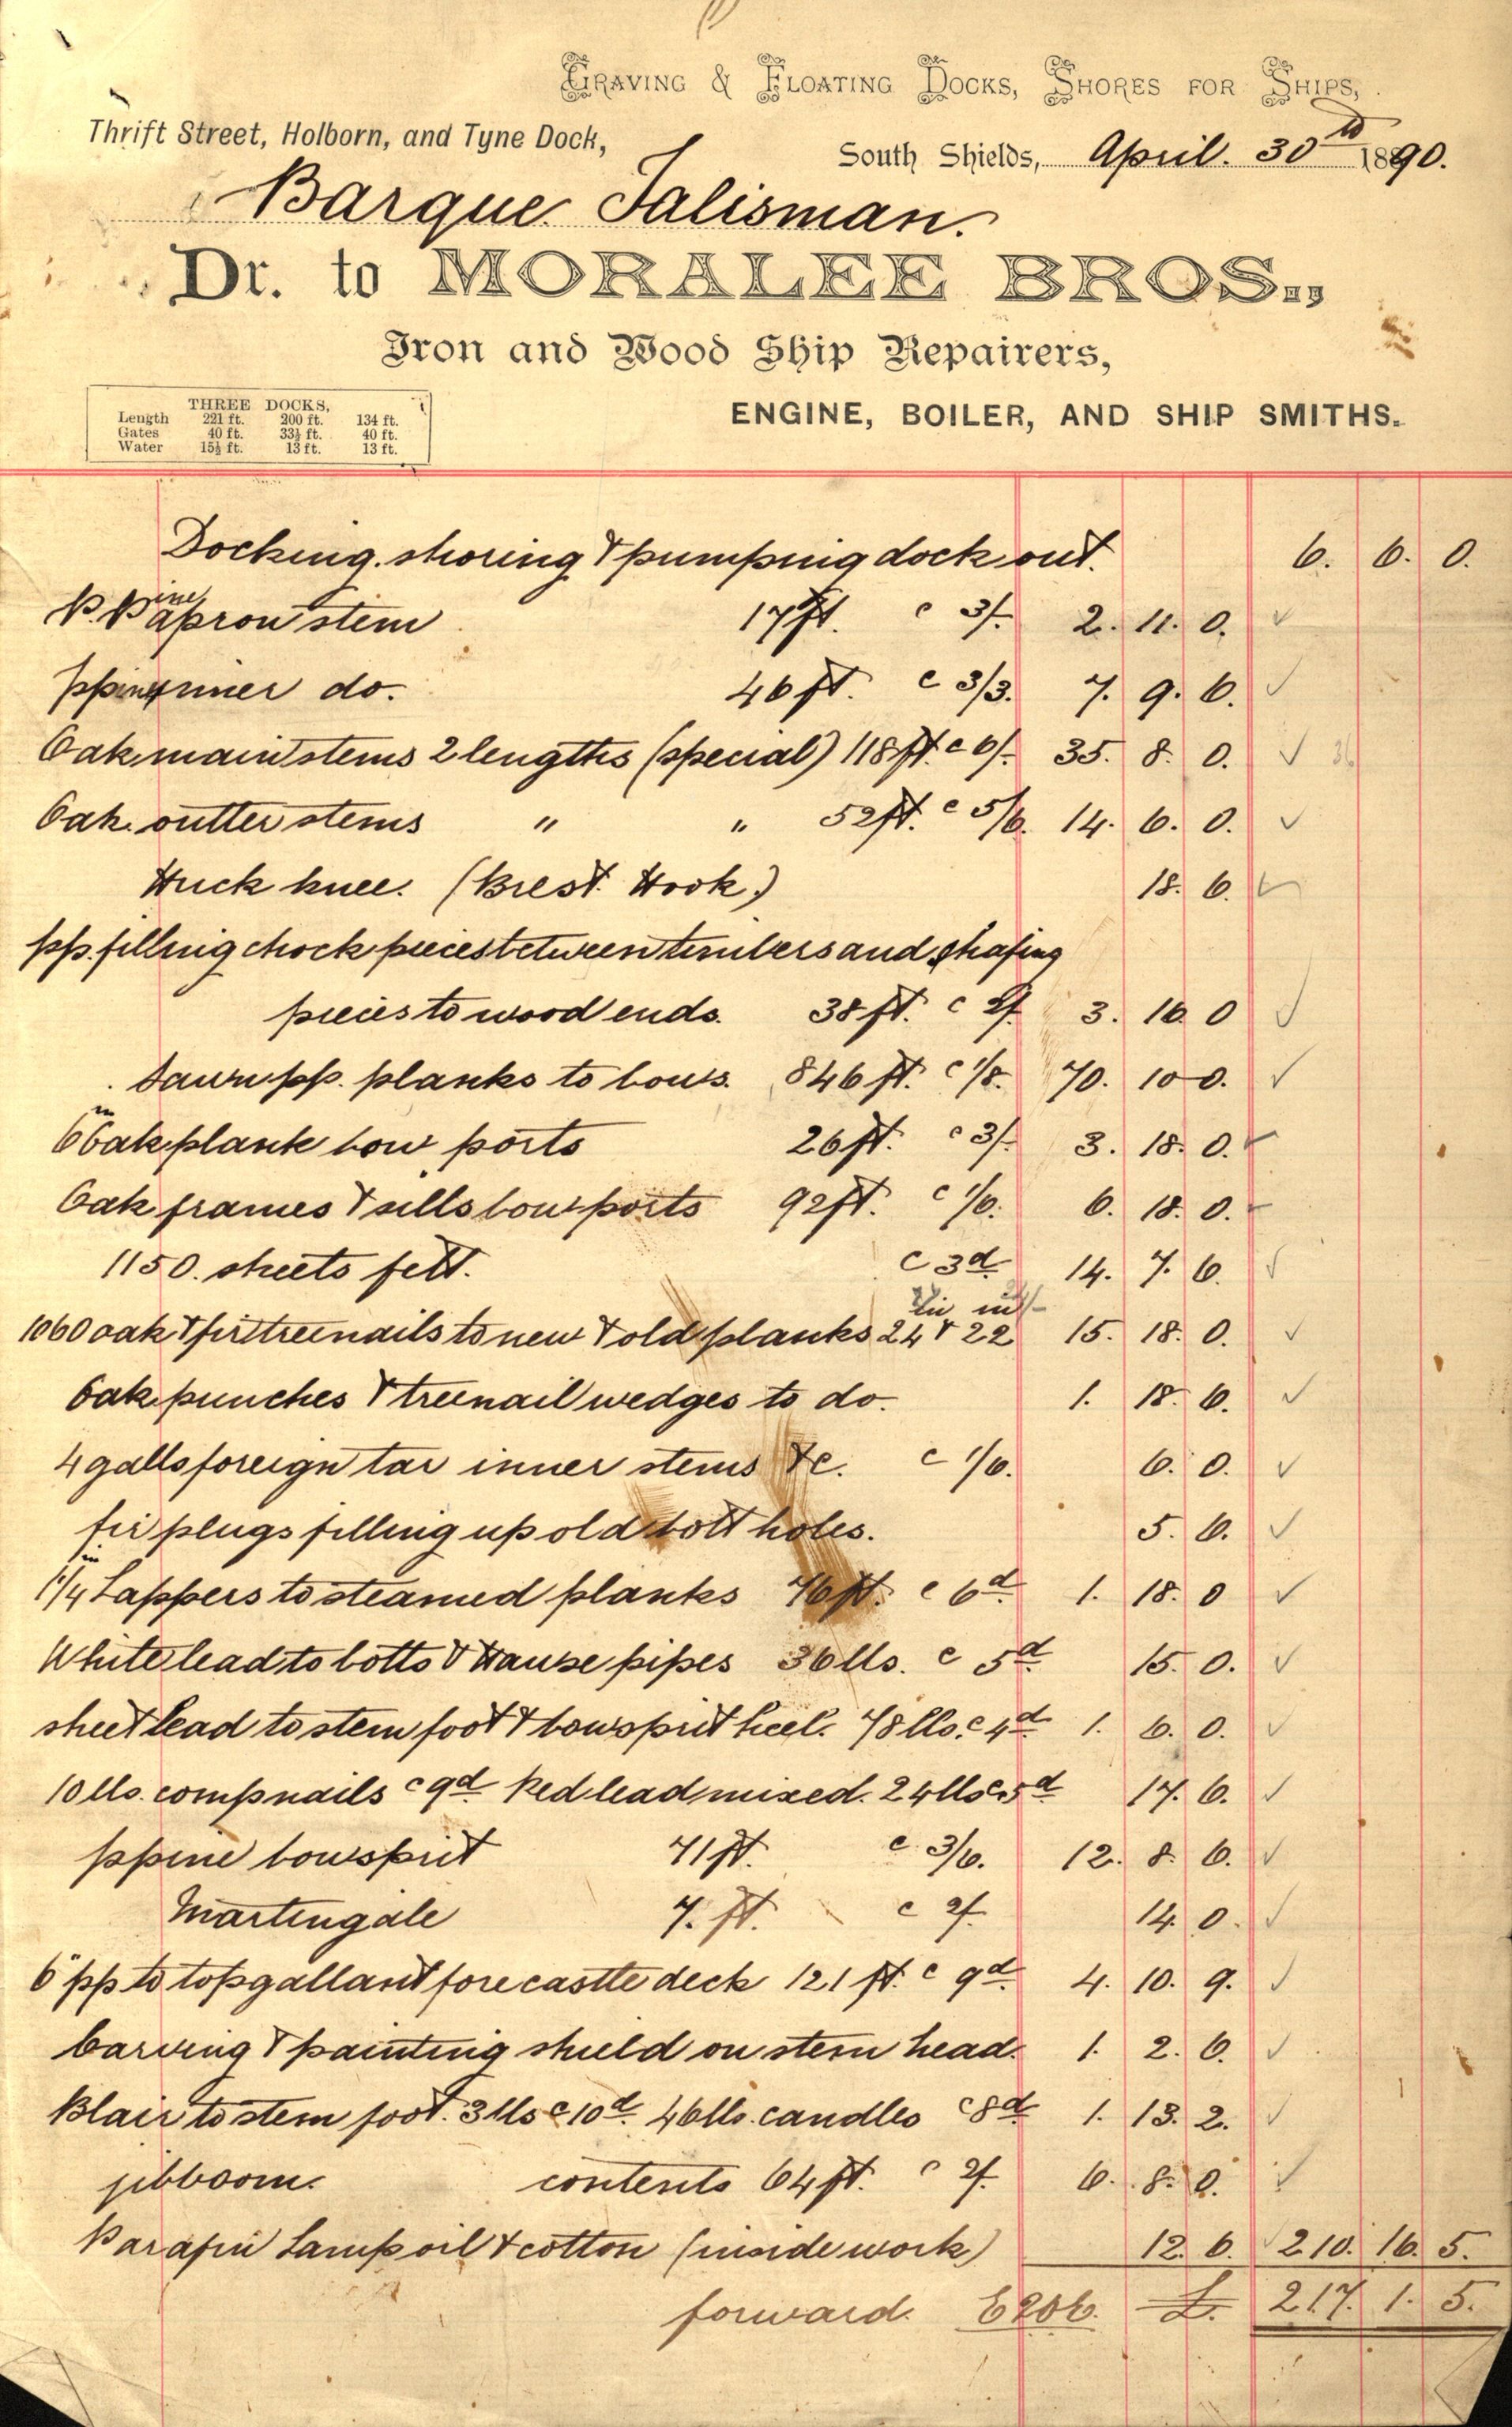 GRAVING & FLOATING DOCKS, SHORES FOR SHIPS,
Thrift Street, Holborn, and Tyne Dock,
South Shields, April. 30th 1890.
Barque Talisman.
Dr. to MORALEE BROS.,
Iron and Wood Ship Repairers,
ENGINE, BOILER, AND SHIP SMITHS.
THREE DOCKS.
Length 221 ft. 200 ft. 134 ft.
Gates 40 ft. 33½ ft. 40 ft.
Water 15½ ft. 13 ft. 13 ft.
Docking. shoring & pumping dock out. 6. 6. 0.
P. Pine apron stem 17 ft. c 3/- 2. 11. 0.
ppine inner do. 46 ft. c 3/3. 7. 9. 6.
Oak main stems 2 lengths (special) 118 ft. c 6/- 35. 8. 0.
Oak outter stems " " 52 ft. c 5/6. 14. 6. 0.
Huck knee. (Brest Hook.) 18. 6.
pp. filling chock pieces between timbers and chafing
pieces to wood ends. 38 ft. c 2/- 3. 16. 0
Sawn pp. planks to bows. 846 ft. c 1/8. 70. 10 0.
6 in Oak plank bow ports 26 ft. c 3/- 3. 18. 0.
Oak frames & sills bow ports 92 ft. c 1/6. 6. 18. 0.
1150. sheets felt. c 3d 14. 7. 6.
in
1060 oak & fir treenails to new & old planks 24 & 22 15. 18. 0.
Oak punches & treenail wedges to do. 1. 18. 6.
4 galls foreign tar inner stems &c. c 1/6. 6. 0.
fir plugs filling up old bolt holes. 5. 6.
1 1/4 in Lappers to steamed planks 76 ft. c 6d 1. 18. 0
White lead to bolts & Hause pipes 36 lbs. c 5d 15. 0.
sheet lead to stem foot & bowsprit heel. 78 lbs. c 4d 1. 6. 0.
10 lbs. comp nails c 9d Red lead mixed. 24 lbs c 5d 17. 6.
ppine bowsprit 71 ft. c 3/6. 12. 8. 6.
Martingale 7. ft. c 2/- 14. 0.
6" pp to topgallant forecastle deck 121 ft. c 9d 4. 10. 9.
Carving & painting shield on stem head. 1. 2. 6.
Blair to stem foot. 3 lbs c 10d. 46 lbs. candles c 8d 1. 13. 2.
jibboom. contents 64 ft. c 2/- 6. 8. 0.
Parafin Lamp oil & cotton (inside work) 12. 6. 210. 16. 5.
forward. £. 217. 1. 5.